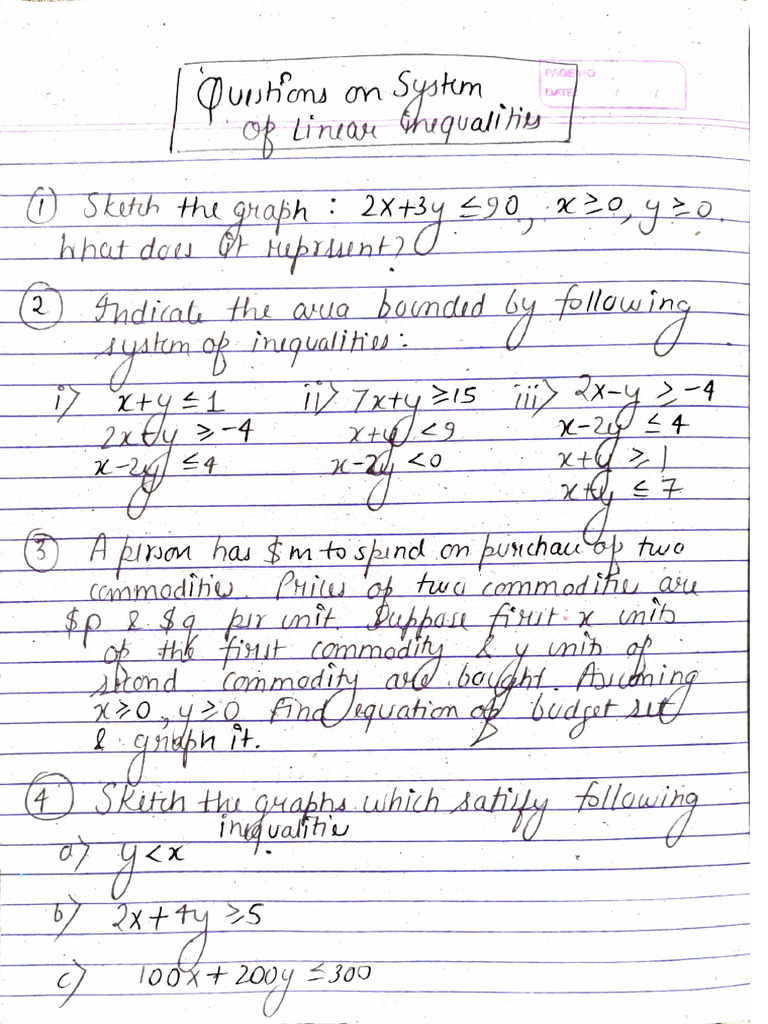 Questions on System
of Linear Inequalities
PAGE NO.
DATE / /
① Sketch the graph : 2x+3y ≤90, x≥0, y≥0.
What does it represent?
② Indicate the area bounded by following
system of inequalities:
i) x+y ≤1 ii) 7x+y ≥15 iii) 2x-y ≥ -4
2x-y ≥ -4 x+y <9 x-2y ≤ 4
x-2y ≤4 x-2y <0 x+y ≥ 1
x+y ≤ 7
③ A person has $m to spend on purchase of two
commodities. Prices of two commodities are
$p & $q per unit. Suppose first x units
of the first commodity & y units of
second commodity are bought. Assuming
x≥0, y≥0 find equation of budget set
& graph it.
④ Sketch the graphs which satisfy following
inequalities
a) y<x
b) 2x+4y ≥5
c) 100x+200y ≤300